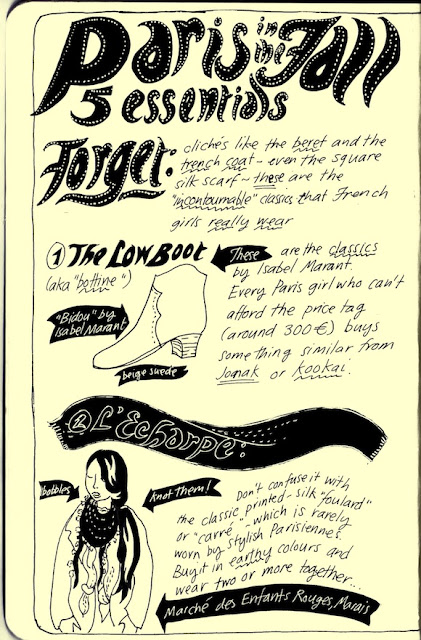 Paris in the Fall
5 essentials
Forget:
cliché's like the beret and the
trench coat ~ even the square
silk scarf ~ these are the
"incontournable" classics that French
girls really wear
1 The Low Boot
(aka "bottine")
These are the classics
by Isabel Marant.
Every Paris girl who can't
afford the price tag
(around 300€) buys
something similar from
Jonak or Kookai.
"Bidou" by
Isabel Marant
beige suede
2 L'Echarpe:
bobbles
Knot Them!
Don't confuse it with
the classic printed-silk "foulard"
or "carré" - which is rarely
worn by stylish Parisiennes.
Buy it in earthy colours and
wear two or more together...
Marché des Enfants Rouges, Marais